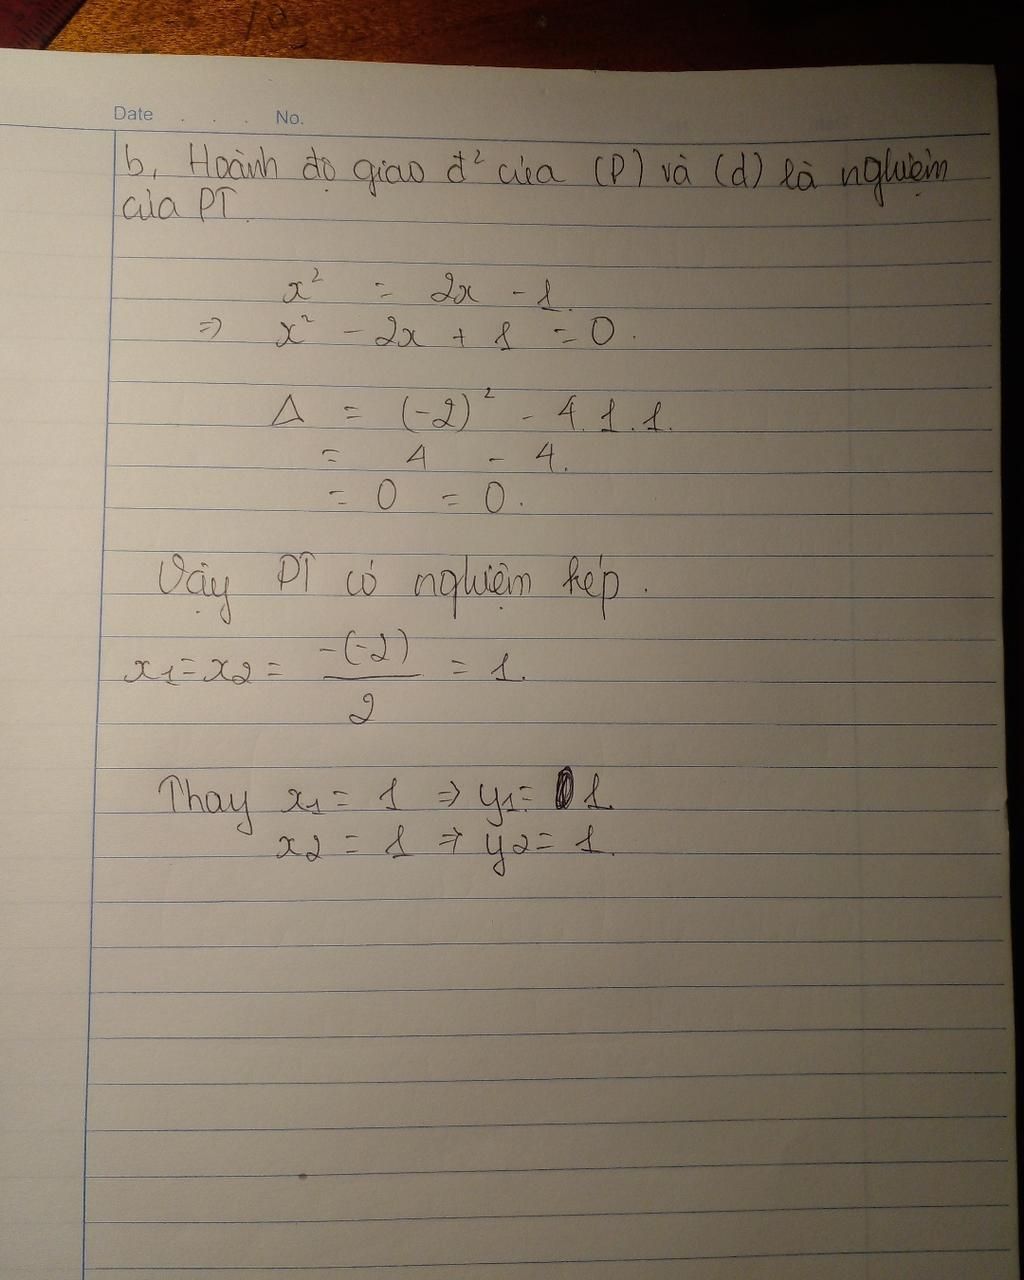 Date . . . No.
b, Hoành độ giao đ² của (P) và (d) là nghiệm
của PT.
x² = 2x - 1.
=> x² - 2x + 1 = 0.
Δ = (-2)² - 4.1.1.
= 4 - 4.
= 0 = 0.
Vậy PT có nghiệm kép.
x1 = x2 = -(-2)/2 = 1.
Thay x1 = 1 => y1 = 1.
x2 = 1 => y2 = 1.